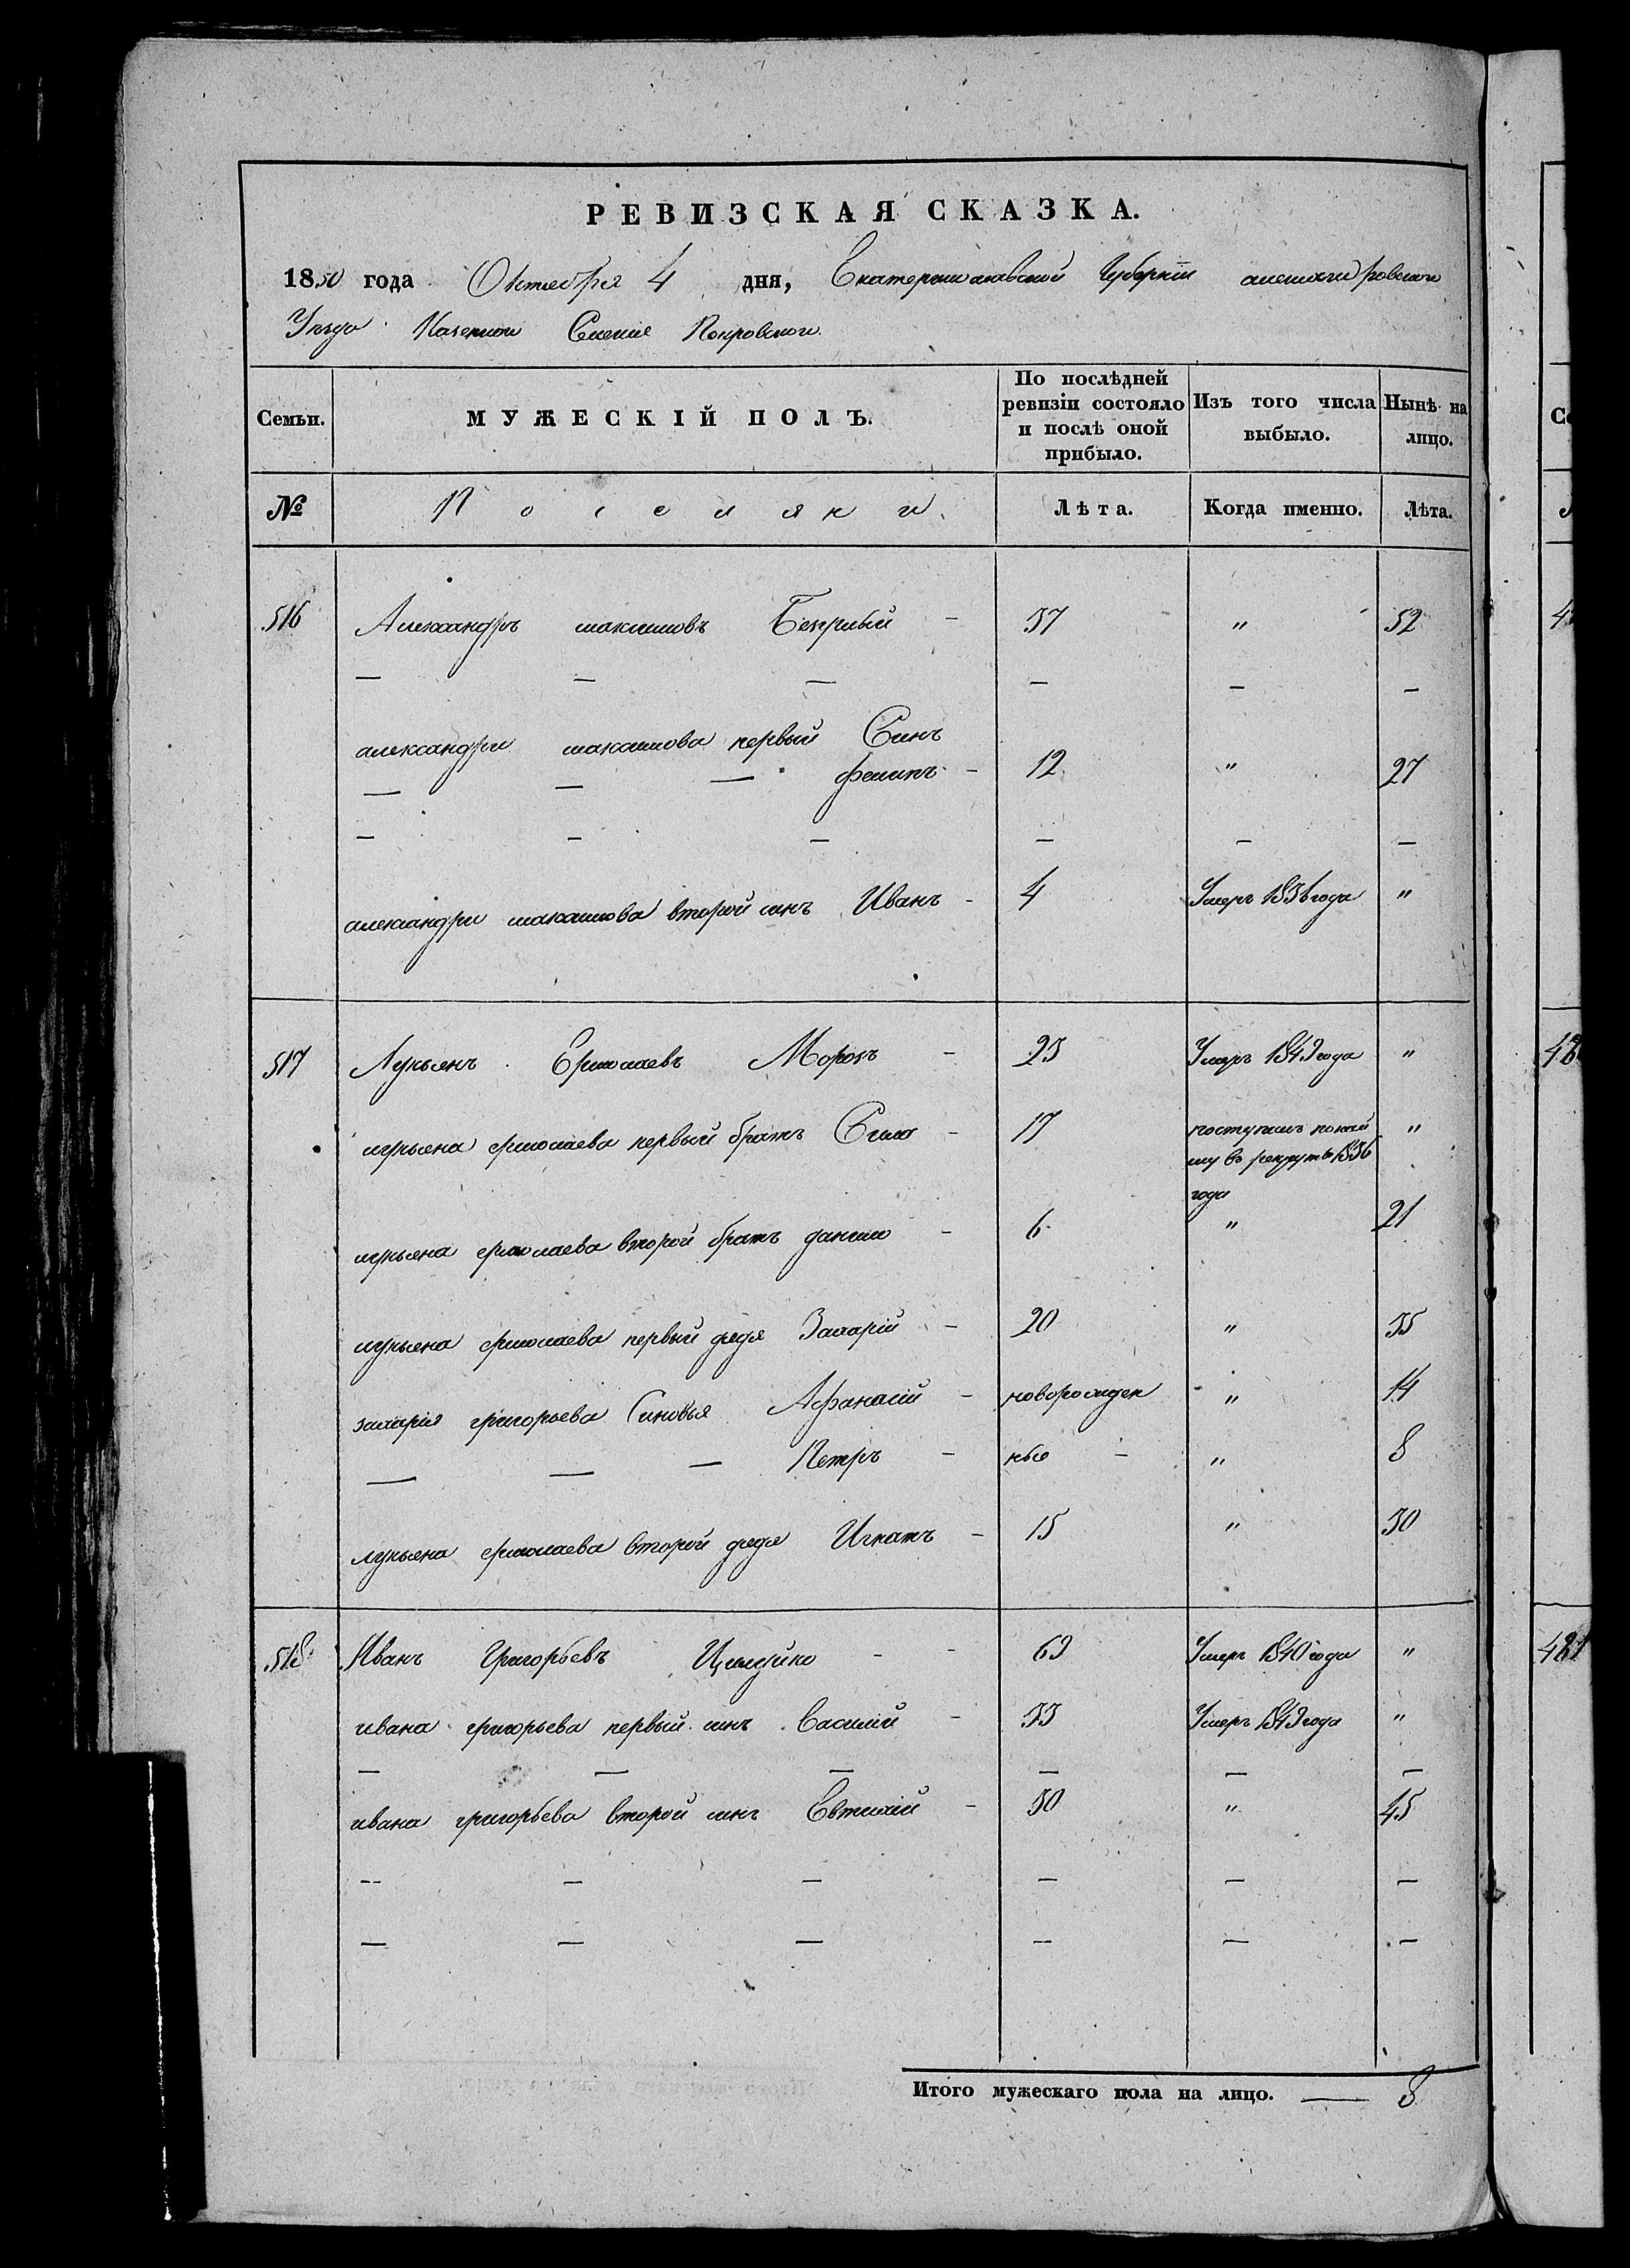 РЕВИЗСКАЯ СКАЗКА.
1850 года Октября 4 дня, Екатеринославской Губернiи александровского
Уезда Казенного Селенiя Покровского.
Семьи. МУЖЕСКIЙ ПОЛЪ. По послѣдней ревизiи состояло и послѣ оной прибыло. Изъ того числа выбыло. Нынѣ на лицо.
№ Поселяни. Лѣта. Когда именно. Лѣта.
516 Александръ максимовъ - 37 " 52
— — — — — —
александра максимова первый Синъ
— — — филипъ - 12 " 27
— — — — — —
александра максимова второй синъ Иванъ - 4 Умеръ 1836 года "
517 Лукьянъ Ермолаевъ Морозъ - 23 Умеръ 1849 года "
лукьяна ермолаева первый братъ Сила - 17 поступилъ
въ рекруты 1836
года
лукьяна ермолаева второй братъ данило - 6 " 21
лукьяна ермолаева первый дядя Захарiй - 20 " 35
захарiя григорьева Синовья Афанасiй - новорожден - " 14
— — — Петръ - ные - " 8
лукьяна ермолаева второй дядя Игнатъ - 15 " 30
518 Иванъ Григорьевъ - 69 Умеръ 1840 года "
ивана григорьева первый синъ Василiй - 33 Умеръ 1849 года "
— — — — — —
ивана григорьева второй синъ Евтихiй - 30 " 45
— — — — — —
— — — — — —
Итого мужескаго пола на лицо. — 8